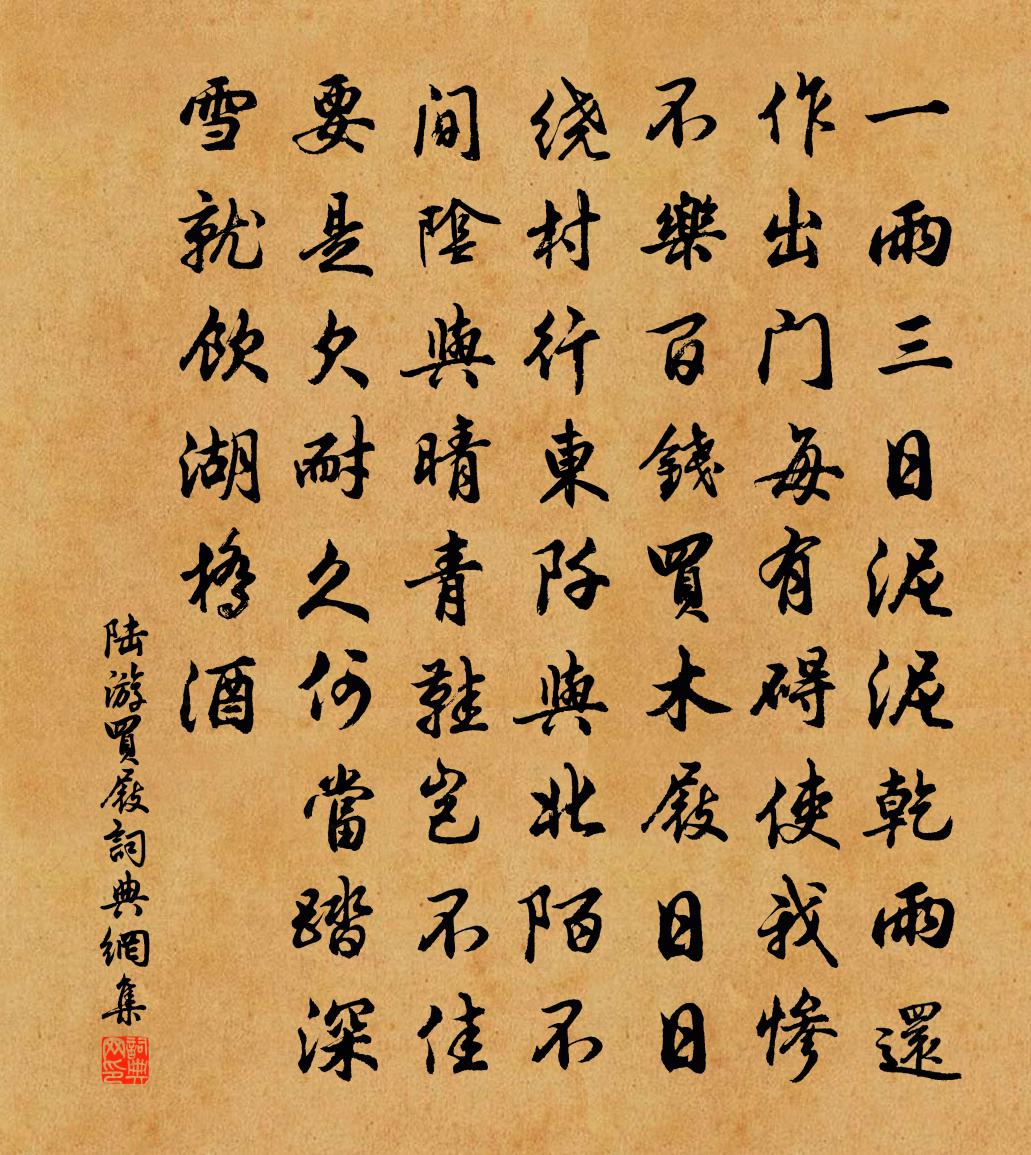 一雨三日泥泥乾雨還
作出门每有碍使我慘
不樂百錢買木屐日日
绕村行東阡與北陌不
间陰與晴青鞋豈不佳
要是欠耐久何當踏深
雪就飲湖橋酒
陆游買屐詞典網集
詞典网印